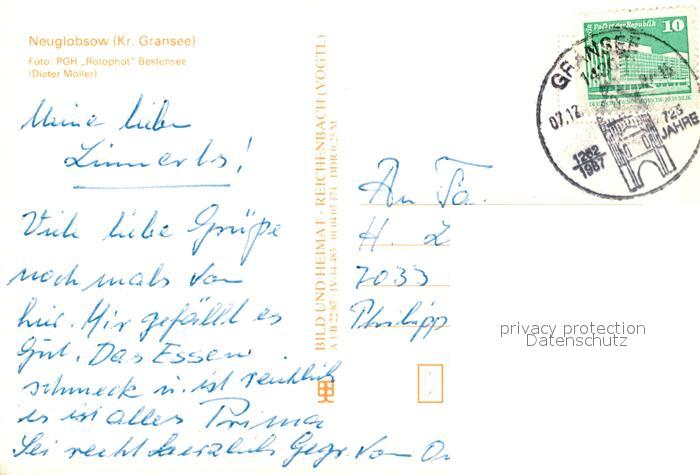 Neuglobsow (Kr. Gransee)
Foto: PGH „Rotophot" Bestensee
(Dieter Möller)
Meine lieben
Linnerts!
Viele liebe Grüße
noch mals von
hier. Mir gefällt es
Gut. Das Essen
schmeck u. ist reichlich
es ist alles Prima
Sei recht herzlich Gegr. von
BILD UND HEIMAT · REICHENBACH (VOGTL)
A 1/B 22/87 · IV-14-483 · 01 04 03 174 · DDR 0,25 M
An Fa.
H. L
7033
Philipp
Palast der Republik 10
DEUTSCHE DEMOKRATISCHE REPUBLIK
GRANSEE
07.12
725
JAHRE
1262
1987
privacy protection
Datenschutz